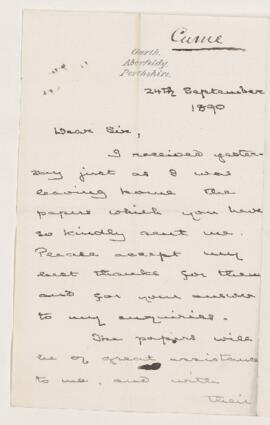 Currie
Garth,
Aberfeldy,
Perthshire.
24th September
1890
Dear Sir,
I received yester-
day just as I was
leaving home the
papers which you have
so kindly sent me.
Please accept my
best thanks for them
and for your answer
to my enquiries.
The papers will
be of great assistance
to me, and with
their